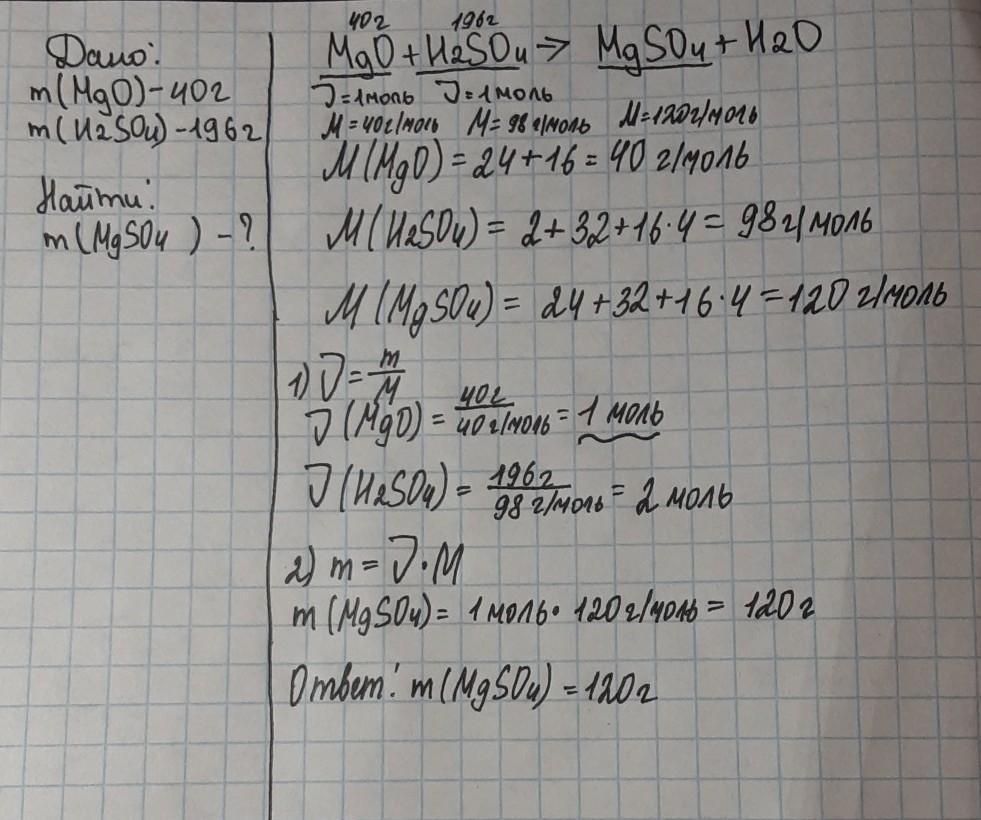 Дано:
m(MgO)-40г
m(H2SO4)-196г
Найти:
m(MgSO4 ) - ?
40г 196г
MgO + H2SO4 → MgSO4 + H2O
J=1моль J=1моль
M=40г/моль M=98г/моль M=120г/моль
M(MgO) = 24+16 = 40 г/моль
M(H2SO4) = 2+32+16·4 = 98г/моль
M(MgSO4) = 24+32+16·4=120г/моль
1) J = m/M
J(MgO) = 40г/40г/моль = 1 моль
J(H2SO4) = 196г/98г/моль = 2 моль
2) m = J·M
m(MgSO4) = 1моль· 120г/моль = 120г
Ответ: m(MgSO4) =120г